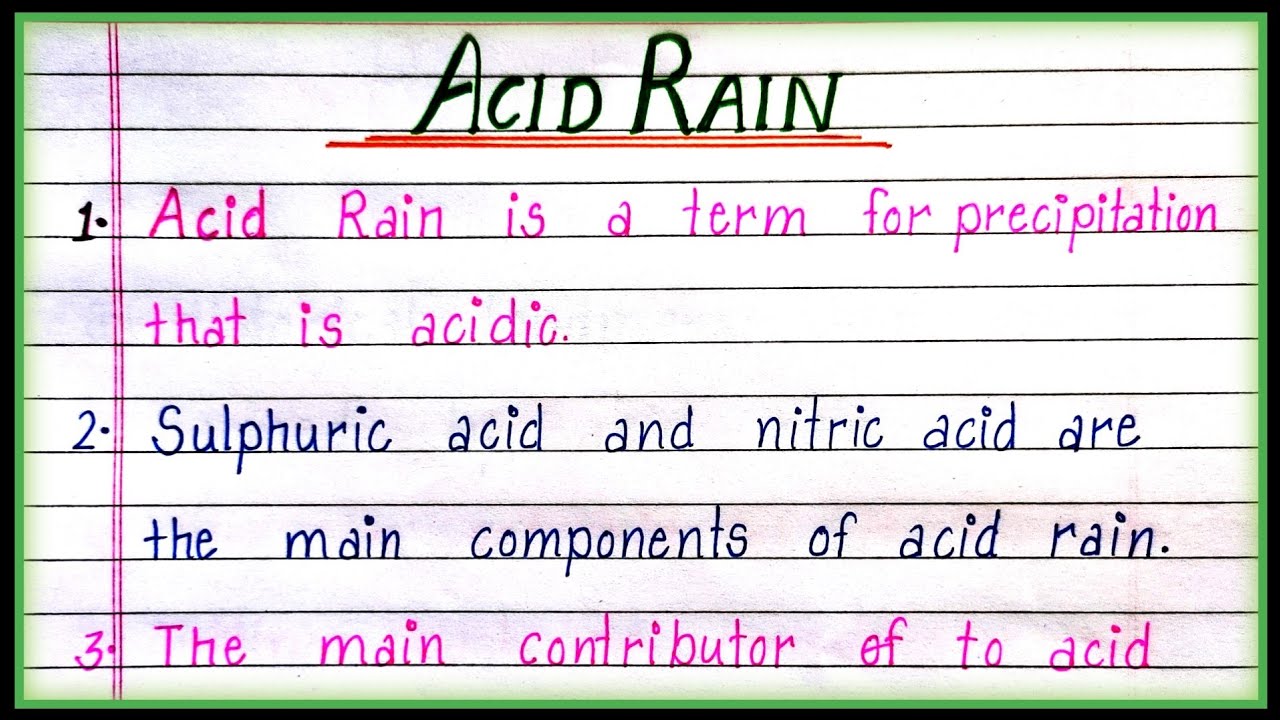 ACID RAIN
1. Acid Rain is a term for precipitation
that is acidic.
2. Sulphuric acid and nitric acid are
the main components of acid rain.
3. The main contributor of to acid